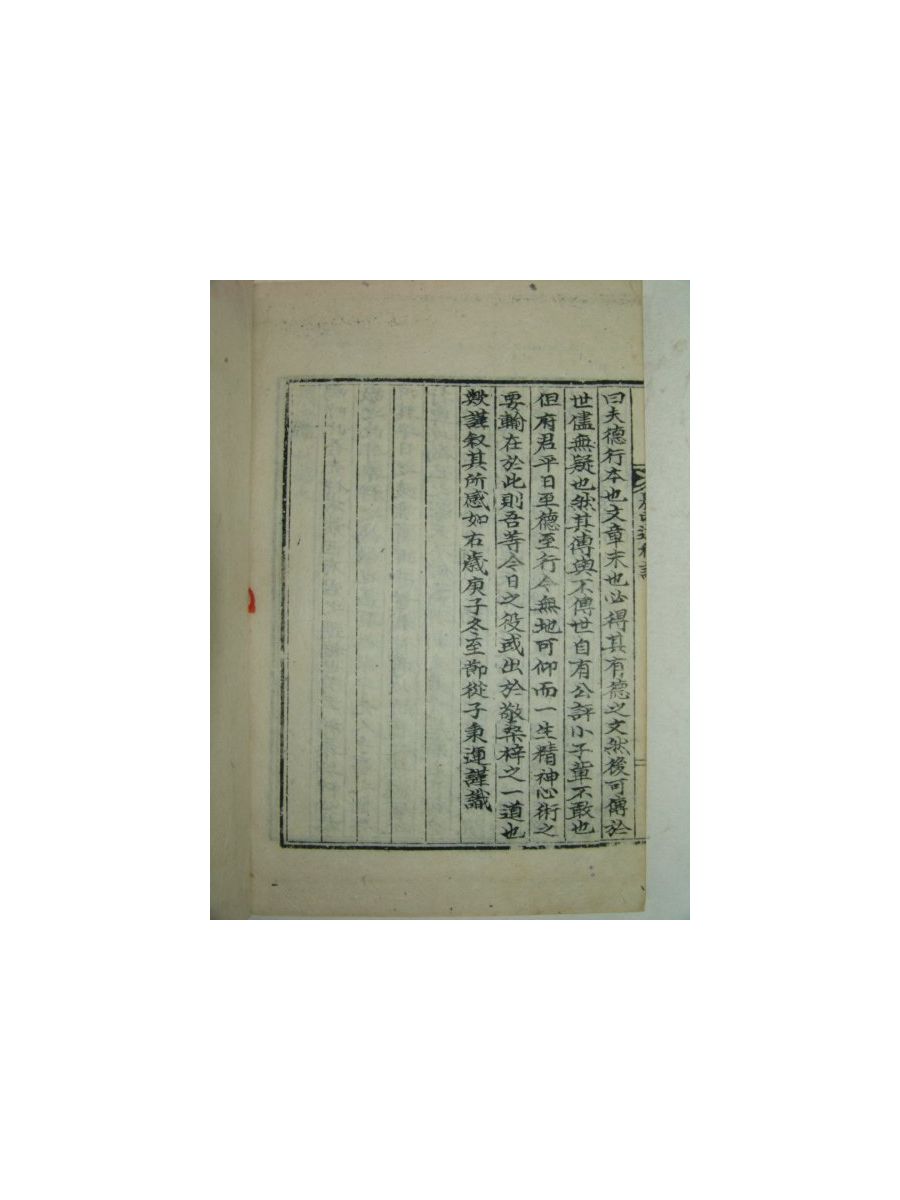 曰夫德行本也文章末也必得其有德之文然後可傳於
世儘無疑也然其傳與不傳世自有公評小子輩不敢也
但府君平日至德至行今無地可仰而一生精神心術之
要輪在於此則吾等今日之役或出於敬桑梓之一道也
歟謹叙其所感如右歲庚子冬至節從子秉運謹識